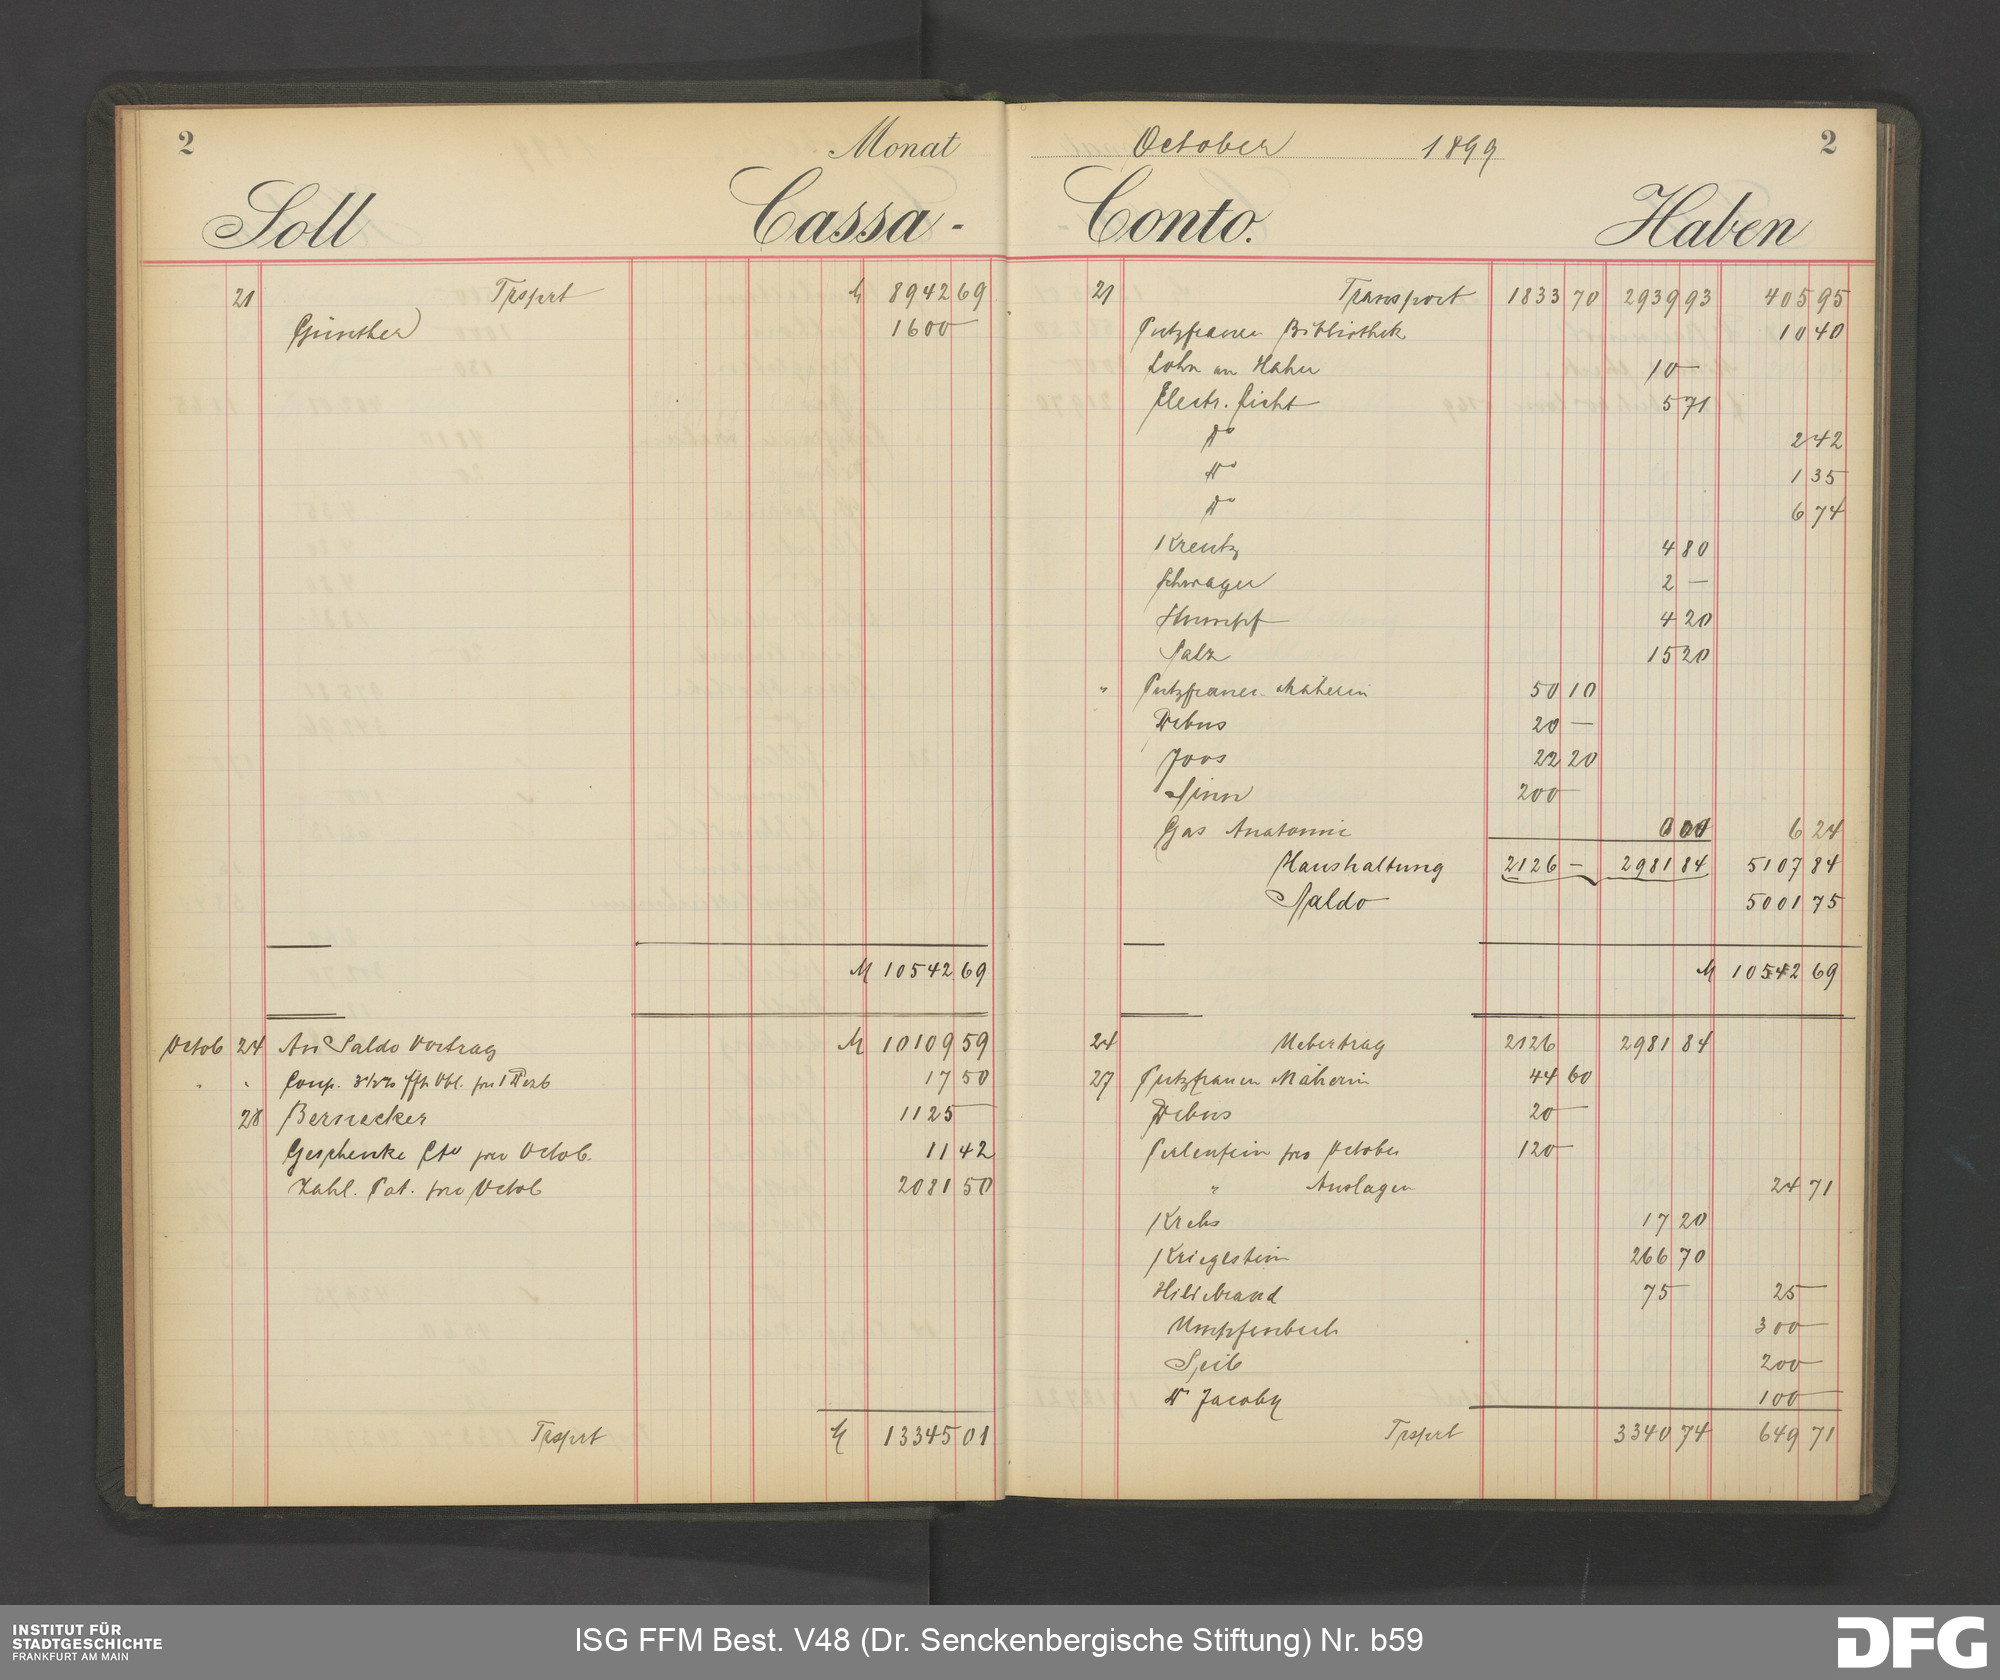 2 Monat
Soll Cassa-
21 Trsprt M 8942 69
Günther 1600 —
M 10542 69
Octob 24 An Saldo Vortrag M 10109 59
" " Coup. 3½% Obl. pro 1 Dezb 17 50
28 Bernecker 1125 —
Geschenke Cto pro Octob. 11 42
Zahl. Pat. pro Octob 2081 50
Trsprt M 13345 01
October 1899 2
Conto. Haben
21 Transport 1833 70 2939 93 405 95
Putzfrauen Bibliothek 10 40
Lohn an Hahn 10 —
Electr. Licht 5 71
do 2 42
do 1 35
do 6 74
Kreutz 4 80
Schwager 2 —
Stumpf 4 20
Salz 15 20
" Putzfrauen Näherin 50 10
Debus 20 —
Joos 22 20
Sinn 200 —
Gas Anatomie 6 24
Haushaltung 2126 — 2981 84 5107 84
Saldo 5001 75
M 10542 69
24 Uebertrag 2126 2981 84
27 Putzfrauen Näherin 44 60
Debus 20 —
Perlenfein pro October 120 —
" Auslagen 24 71
Krebs 17 20
Kriegstein 266 70
Hildebrand 75 — 25 —
Umpfenbach 300 —
Seib 200 —
Dr Jacoby 100 —
Trsprt 3340 74 649 71
INSTITUT FÜR
STADTGESCHICHTE
FRANKFURT AM MAIN
ISG FFM Best. V48 (Dr. Senckenbergische Stiftung) Nr. b59
DFG